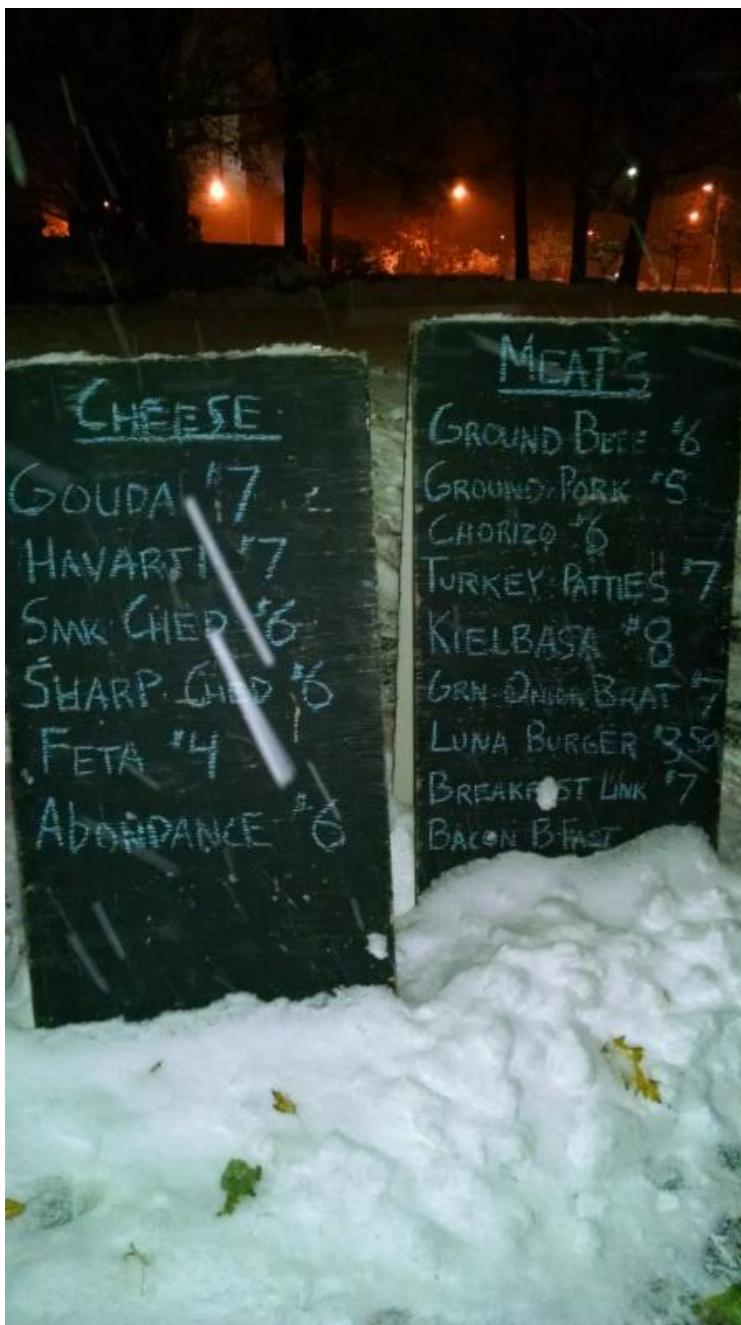 CHEESE
GOUDA $7
HAVARTI $7
SMK CHED $6
SHARP CHED $6
FETA $4
ABONDANCE $6
MEATS
GROUND BEEF $6
GROUND PORK $5
CHORIZO $6
TURKEY PATTIES $7
KIELBASA $8
GRN ONION BRAT $7
LUNA BURGER $3.50
BREAKFAST LINK $7
BACON BFAST